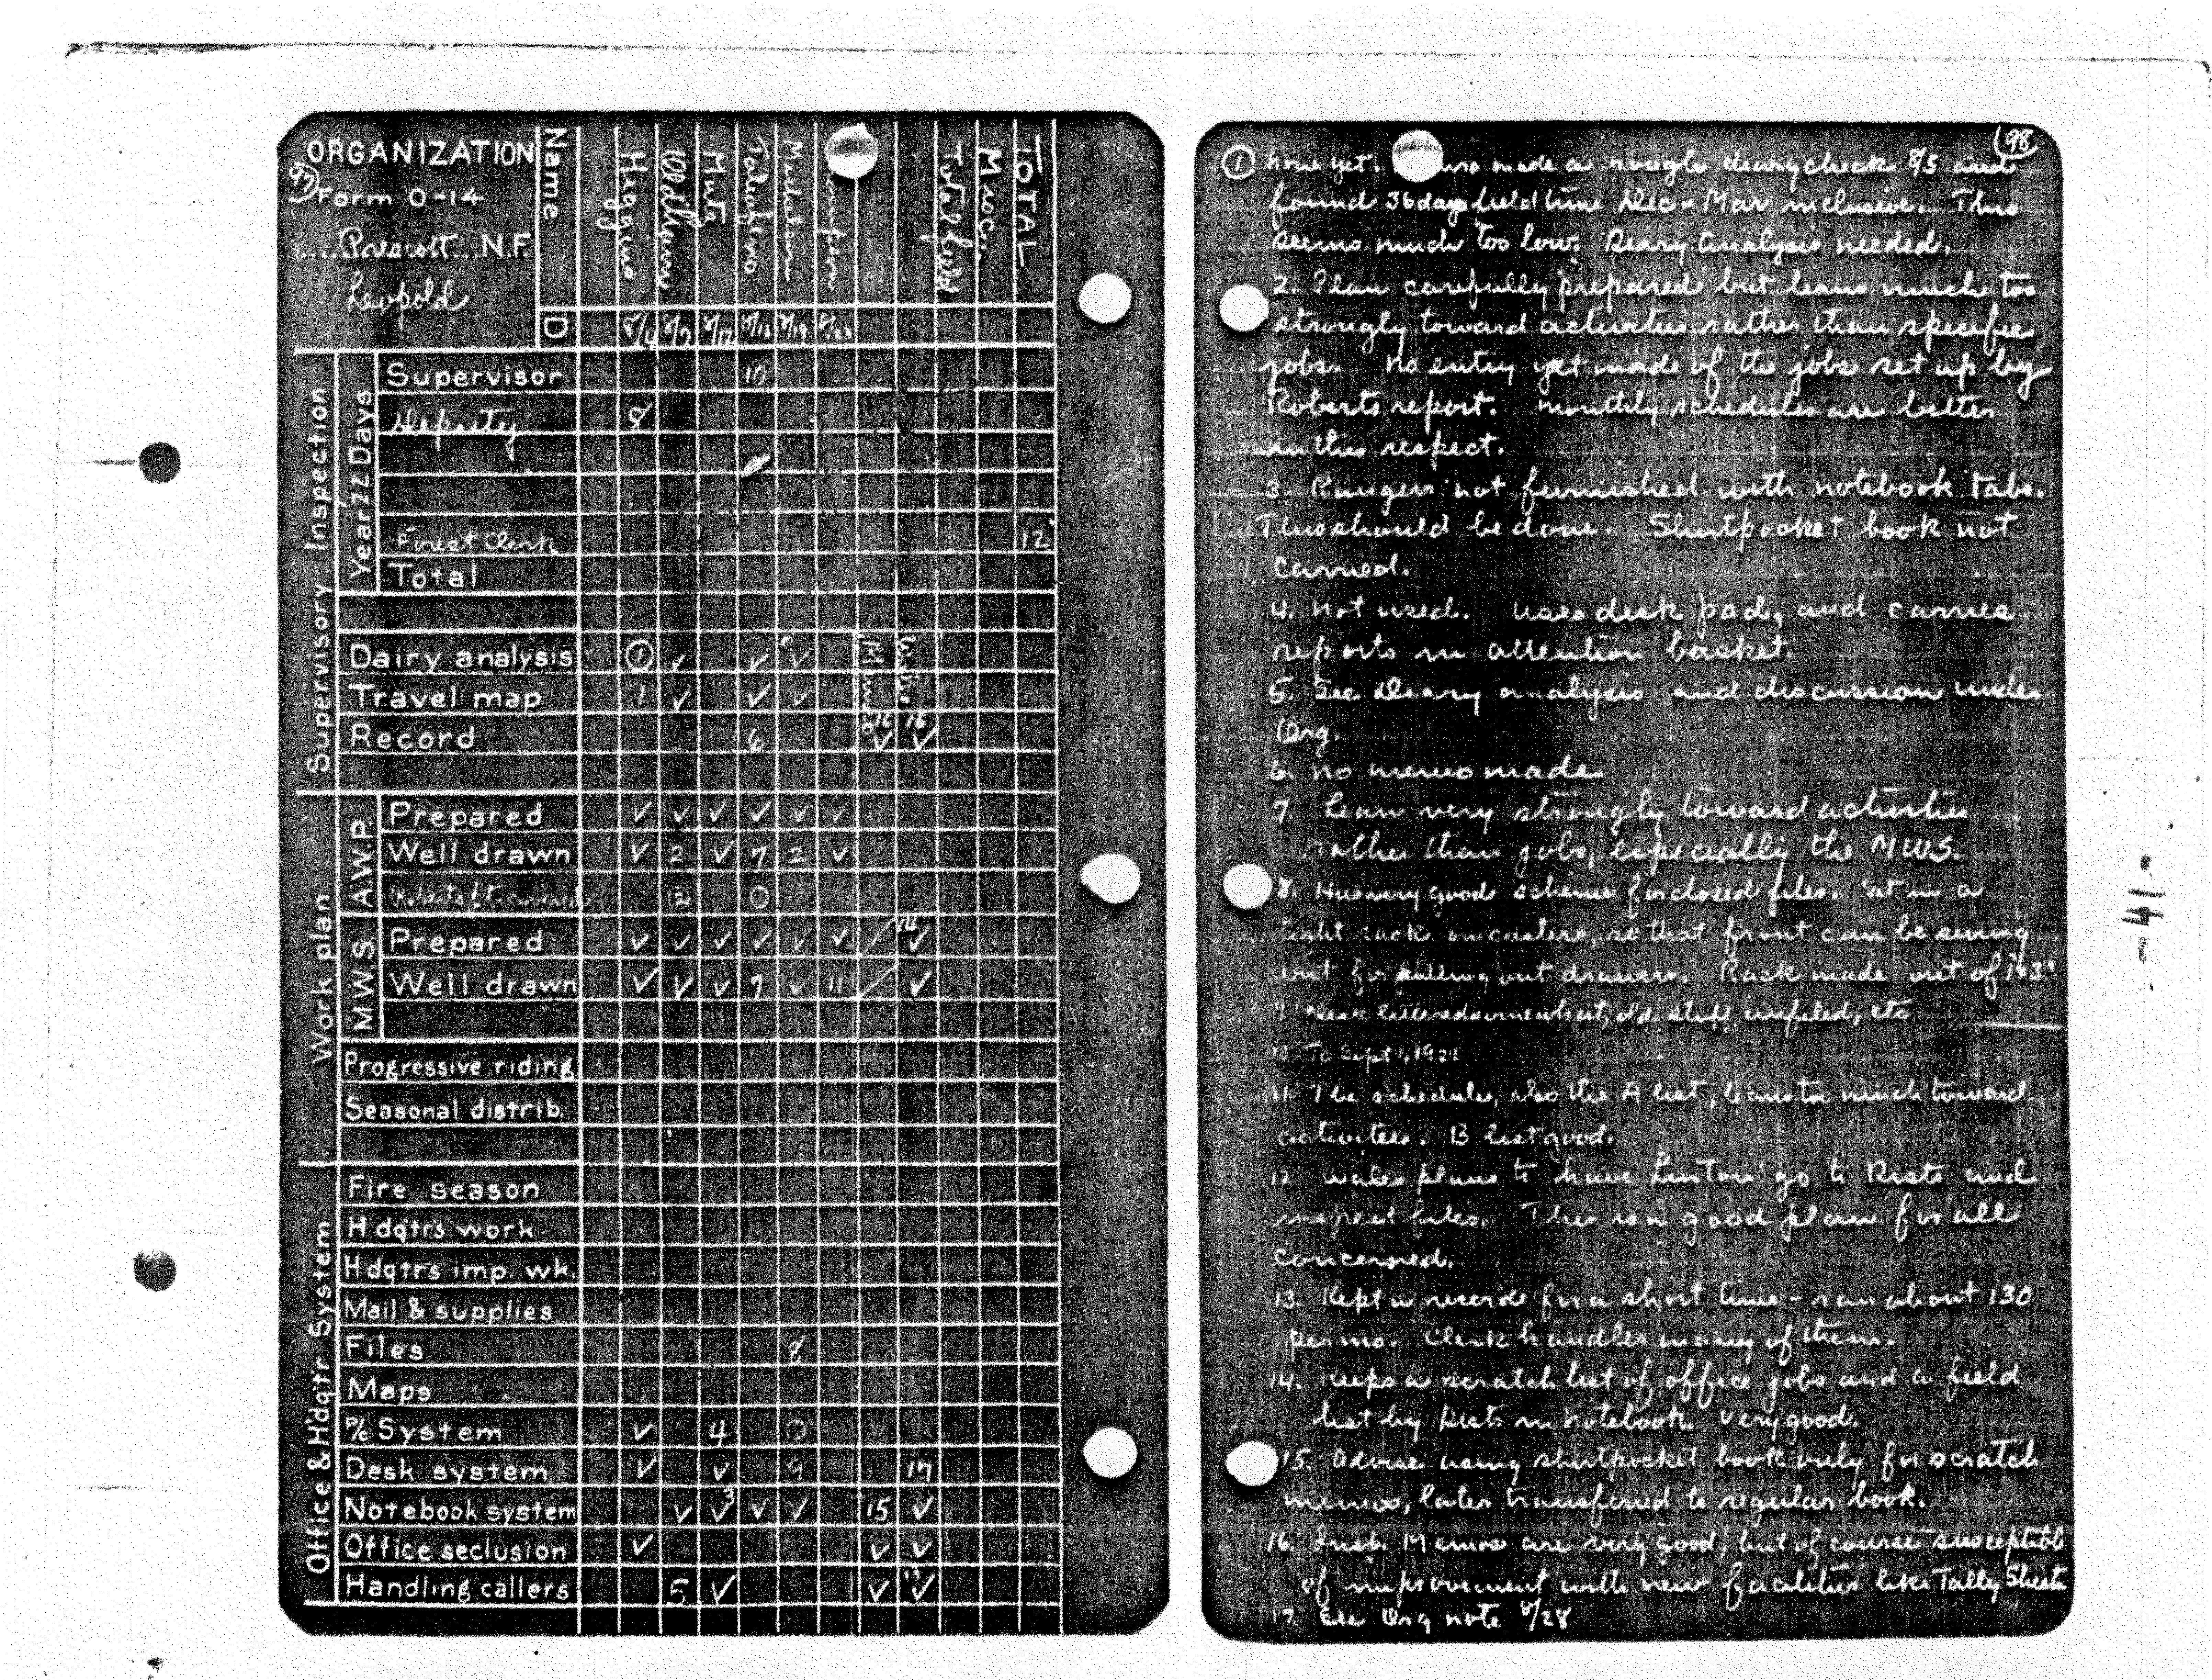 97
ORGANIZATION
Form O-14
Prescott N.F.
Leopold
Name
Higgins
Oldham
Muta
Michelson
Total field
Misc.
TOTAL
D 8/4 8/7 8/12 8/16 8/19 8/23
Supervisory Inspection
Year '22 Days
Supervisor 10
Deputy 8
Forest Clerk 12
Total
Dairy analysis ① ✓ ✓ ✓
Travel map 1 ✓ ✓ ✓
16 16
Record 6 ✓ ✓
Work plan
A.W.P.
Prepared ✓ ✓ ✓ ✓ ✓ ✓
Well drawn ✓ 2 ✓ 7 2 ✓
② 0
M.W.S.
14
Prepared ✓ ✓ ✓ ✓ ✓ ✓ ✓
Well drawn ✓ ✓ ✓ 7 ✓ 11 ✓
Progressive riding
Seasonal distrib.
Office & Hdq'tr System
Fire season
Hdq'tr's work
Hdqtr's imp. wk.
Mail & supplies
Files 8
Maps
P/c System ✓ 4 0
Desk system ✓ ✓ 9 17
Notebook system ✓ ✓ 3 ✓ ✓ 15 ✓
Office seclusion ✓ ✓ ✓
Handling callers 5 ✓ ✓ 13 ✓
98
① None yet. made a rough diary check 8/5 and
found 36 days field time Dec - Mar inclusive. This
seems much too low. Diary analysis needed.
2. Plan carefully prepared but leans much too
strongly toward activities rather than specific
jobs. No entry yet made of the jobs set up by
Roberts report. Monthly schedules are better
in this respect.
3. Rangers not furnished with notebook tabs.
This should be done. Shirtpocket book not
carried.
4. Not used. Uses desk pad, and carries
reports in attention basket.
5. See Diary analysis and discussion under
Org.
6. No memo made
7. Lean very strongly toward activities
rather than jobs, especially the MWS.
8. Has very good scheme for closed files. Set in a
light rack on casters, so that front can be swung
out for pulling out drawers. Rack made out of 1x3"
9. Desk littered somewhat, old stuff unfiled, etc
10 To Sept 1, 1921
11. The schedule, also the A list, leans too much toward
activities. B list good.
12 Wales plans to have Linton go to Dists and
inspect files. This is a good plan for all
concerned.
13. Kept a record for a short time - ran about 130
per mo. Clerk handles many of them.
14. Keeps a scratch list of office jobs and a field
list by Dists in notebook. Very good.
15. Advise using shirtpocket book only for scratch
memos, later transferred to regular book.
16. Insp. Memos are very good, but of course susceptible
of improvement with new facilities like Tally Sheets
17. See Org note 8/28
-41-